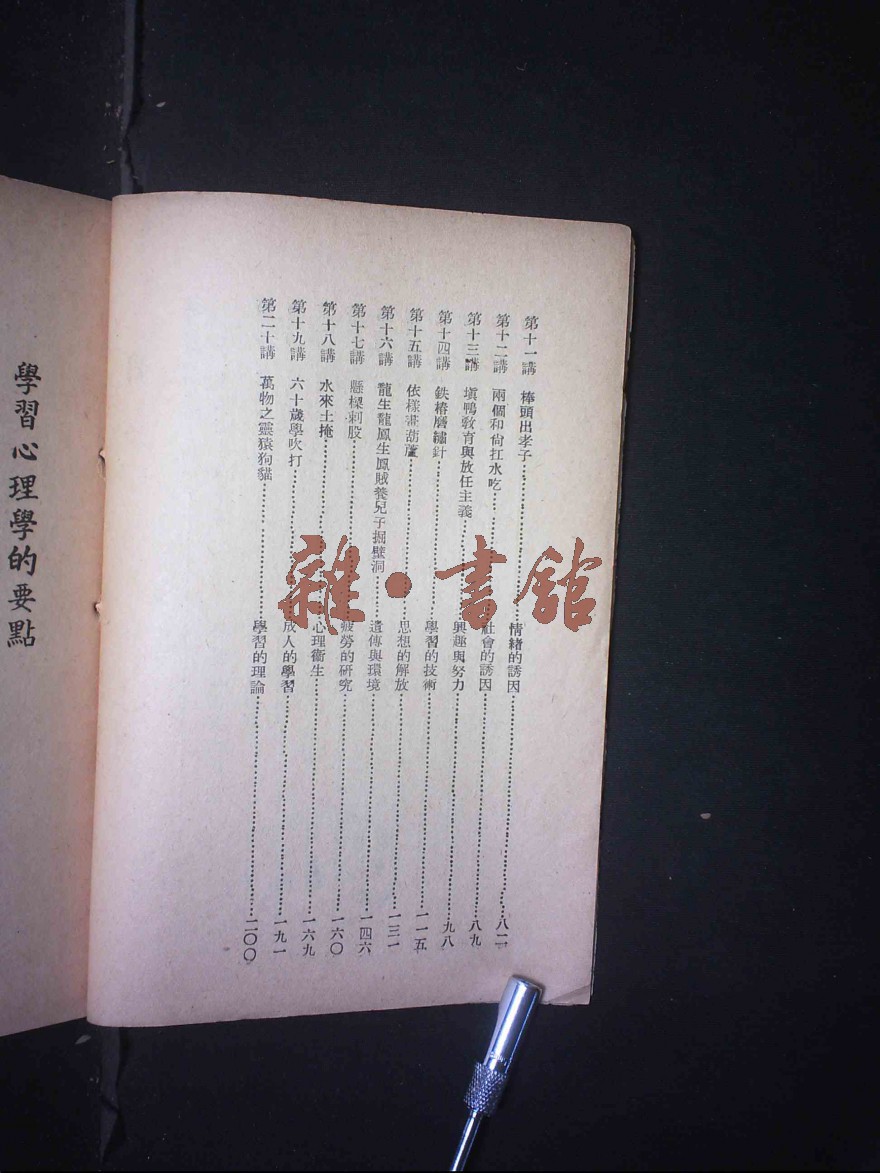 第十一講 棒頭出孝子……情緒的誘因……八二
第十二講 兩個和尙扛水吃……社會的誘因……八九
第十三講 塡鴨敎育與放任主義……興趣與努力……九八
第十四講 鉄樁磨繡針……學習的技術……一一五
第十五講 依樣畫葫蘆……思想的解放……一三一
第十六講 龍生龍鳳生鳳賊養兒子掘壁洞……遺傳與環境……一四六
第十七講 懸樑刺股……疲勞的研究……一六〇
第十八講 水來土掩……心理衞生……一六九
第十九講 六十歲學吹打……成人的學習……一九一
第二十講 萬物之靈猿狗貓……學習的理論……二〇〇
學習心理學的要點
雜·書館